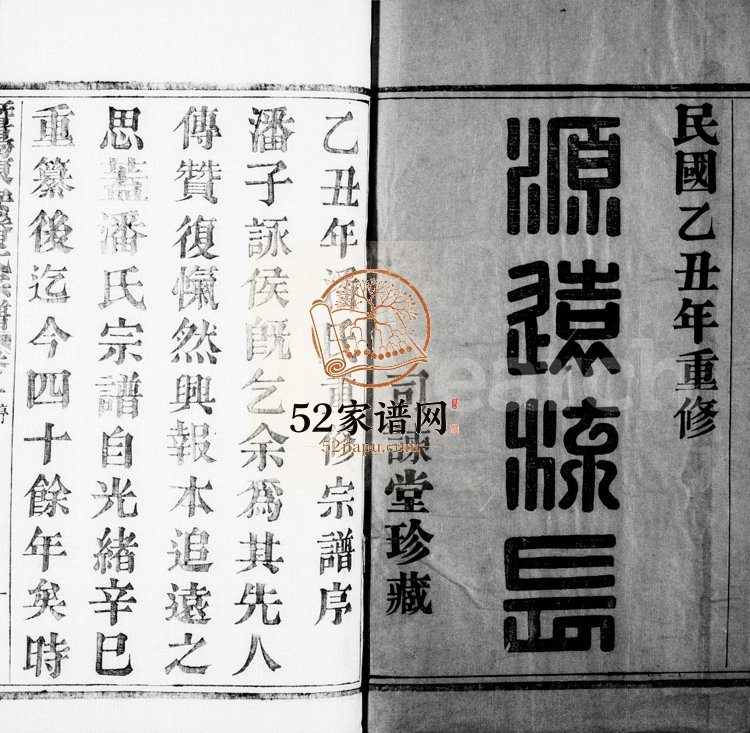 民國乙丑年重修
源遠流長
司諫堂珍藏
乙丑年潘氏重修宗譜序
潘子詠侯既乞余為其先人
傳贊復愾然興報本追遠之
思蓋潘氏宗譜自光緒辛巳
重纂後迄今四十餘年矣時
52家谱网
52jiapu.com